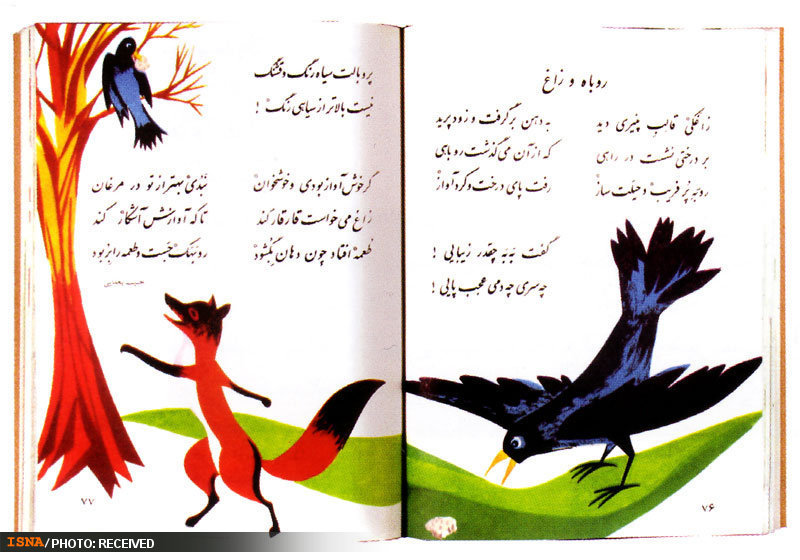 روباه و زاغ
زاغکی قالب پنیری دید به دهن برگرفت و زود پرید
بر درختی نشست در راهی که از آن می گذشت روباهی
روبه پر فریب و حیلت ساز رفت پای درخت و کرد آواز
گفت به به چقدر زیبایی !
چه سری چه دمی عجب پایی !
۷۶
پر و بالت سیاه رنگ و قشنگ
نیست بالاتر از سیاهی رنگ !
گر خوش آواز بودی و خوشخوان نبدی بهتر از تو در مرغان
زاغ می خواست قار قار کند تا که آوازش آشکار کند
طعمه افتاد چون دهان بگشود روبهک جست و طعمه را بربود
حبیب یغمایی
۷۷
ISNA/PHOTO: RECEIVED